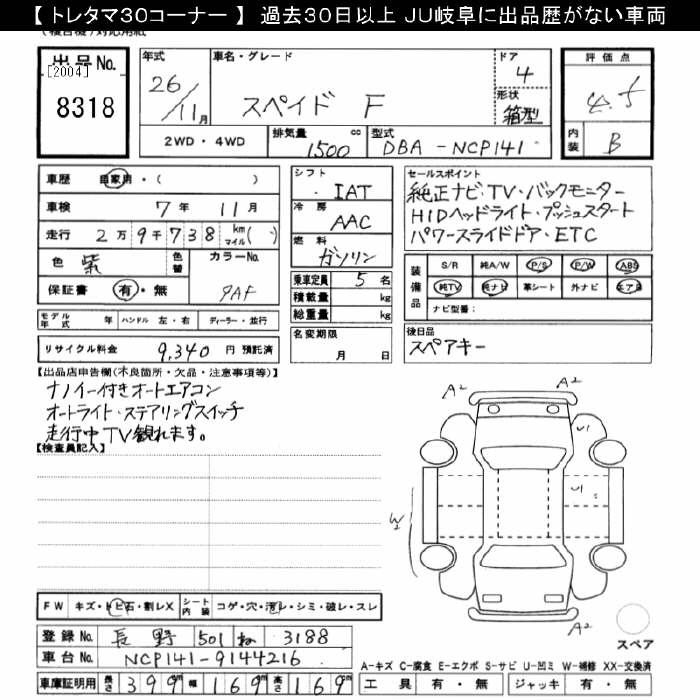 【 トレタマ30コーナー 】 過去30日以上 JU岐阜に出品歴がない車両
出品No.
[2004]
8318
年式
26/11月
車名・グレード
スペイド F
ドア
4
形状
箱型
評価点
4.5
内装
B
2WD・4WD
排気量
1500 cc
型式
DBA-NCP141
車歴 自家用・( )
車検 7年 11月
走行 2万9千738 km マイル( )
色 紫 色替
カラーNo.
9AF
保証書 有・無
モデル年式 年 ハンドル 左・右 ディーラー・並行
リサイクル料金 9,340 円 預託済
シフト
IAT
冷房
AAC
燃料
ガソリン
乗車定員 5名
積載量 kg
総重量 kg
名変期限
月 日
セールスポイント
純正ナビ・TV・バックモニター
HIDヘッドライト・プッシュスタート
パワースライドドア・ETC
装備品
S/R 純A/W P/S P/W ABS
純TV 純ナビ 革シート 外ナビ エアB
ナビ型番:
後日品
スペアキー
【出品店申告欄(不良箇所・欠品・注意事項等)】
ナノイー付きオートエアコン
オートライト・ステアリングスイッチ
走行中TV観れます。
【検査員記入】
A2
A2
U1
U1
W2
A2
スペア
FW キズ・トビ石・割レX シート内装 コゲ・穴・汚レ・シミ・破レ・スレ
登録No. 長野 501 ね 3188
車台No. NCP141-9144216
車庫証明用 長さ 399 m 幅 169 m 高さ 169 m
A-キズ C-腐食 E-エクボ S-サビ U-凹ミ W-補修 XX-交換済
工具 有・無 ジャッキ 有・無